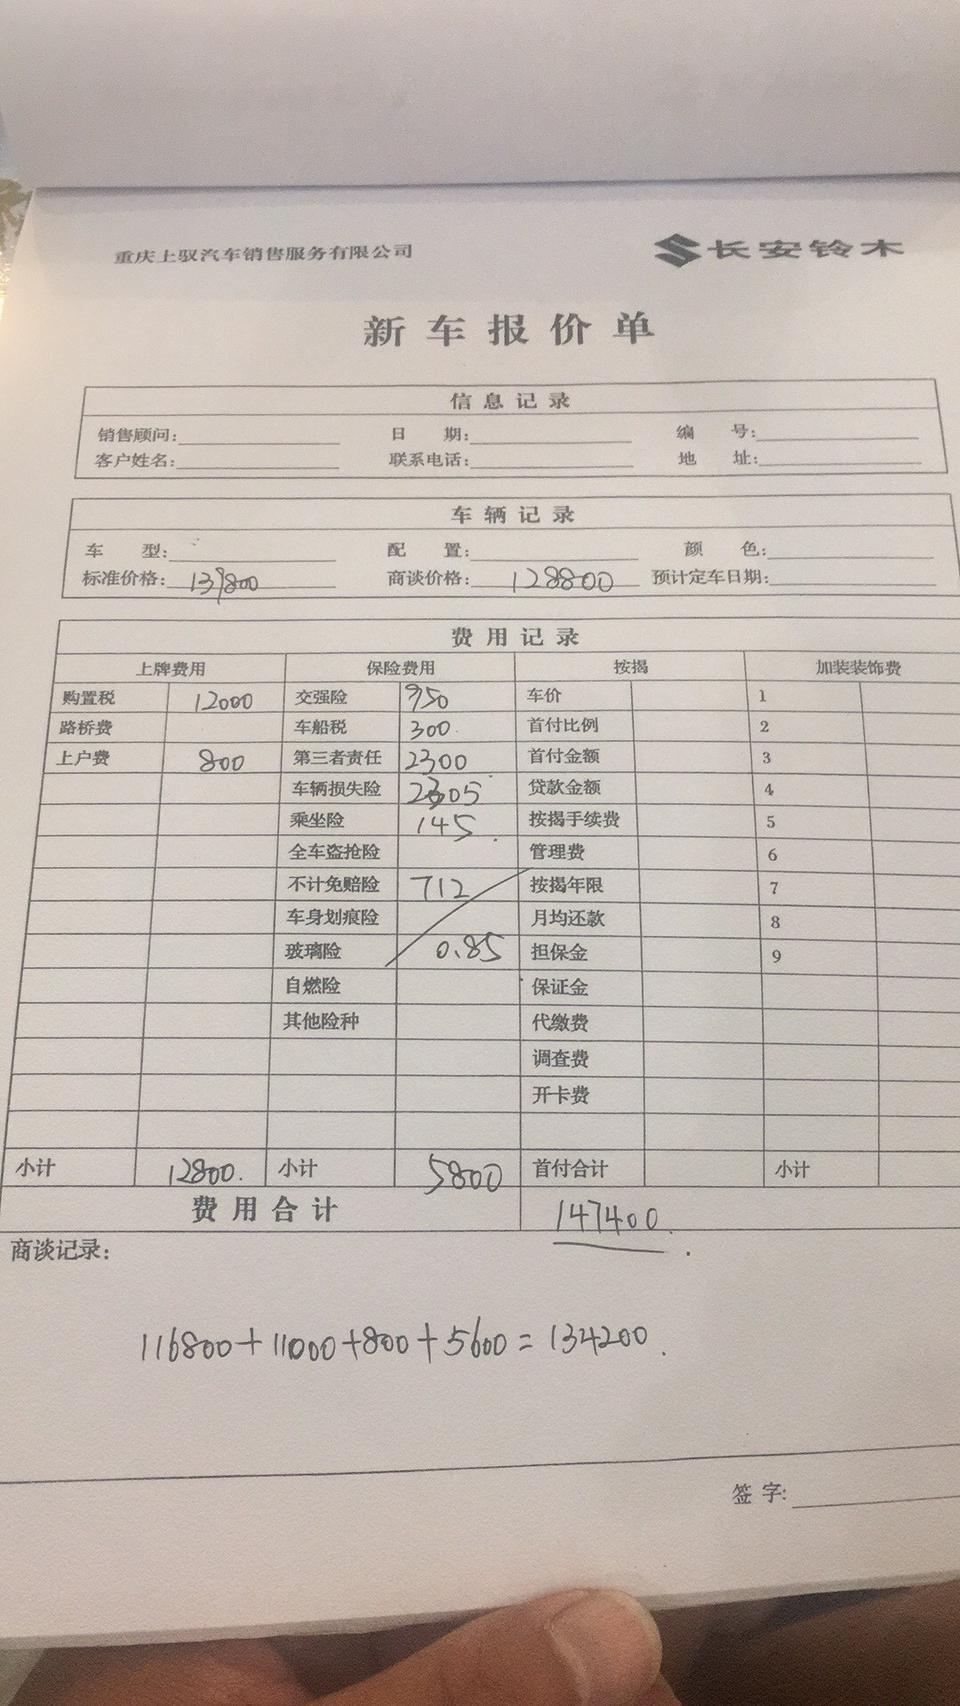 重庆上驭汽车销售服务有限公司 长安铃木
新车报价单
信息记录
销售顾问: 日期: 编号:
客户姓名: 联系电话: 地址:
车辆记录
车型: 配置: 颜色:
标准价格: 139800 商谈价格: 128800 预计定车日期:
费用记录
上牌费用 保险费用 按揭 加装装饰费
购置税 12000 交强险 950 车价 1
路桥费 车船税 300 首付比例 2
上户费 800 第三者责任 2300 首付金额 3
车辆损失险 2305 贷款金额 4
乘坐险 145 按揭手续费 5
全车盗抢险 管理费 6
不计免赔险 712 按揭年限 7
车身划痕险 月均还款 8
玻璃险 0.85 担保金 9
自燃险 保证金
其他险种 代缴费
调查费
开卡费
小计 12800. 小计 5800 首付合计 小计
费用合计 147400.
商谈记录:
116800+11000+800+5600=134200.
签字: